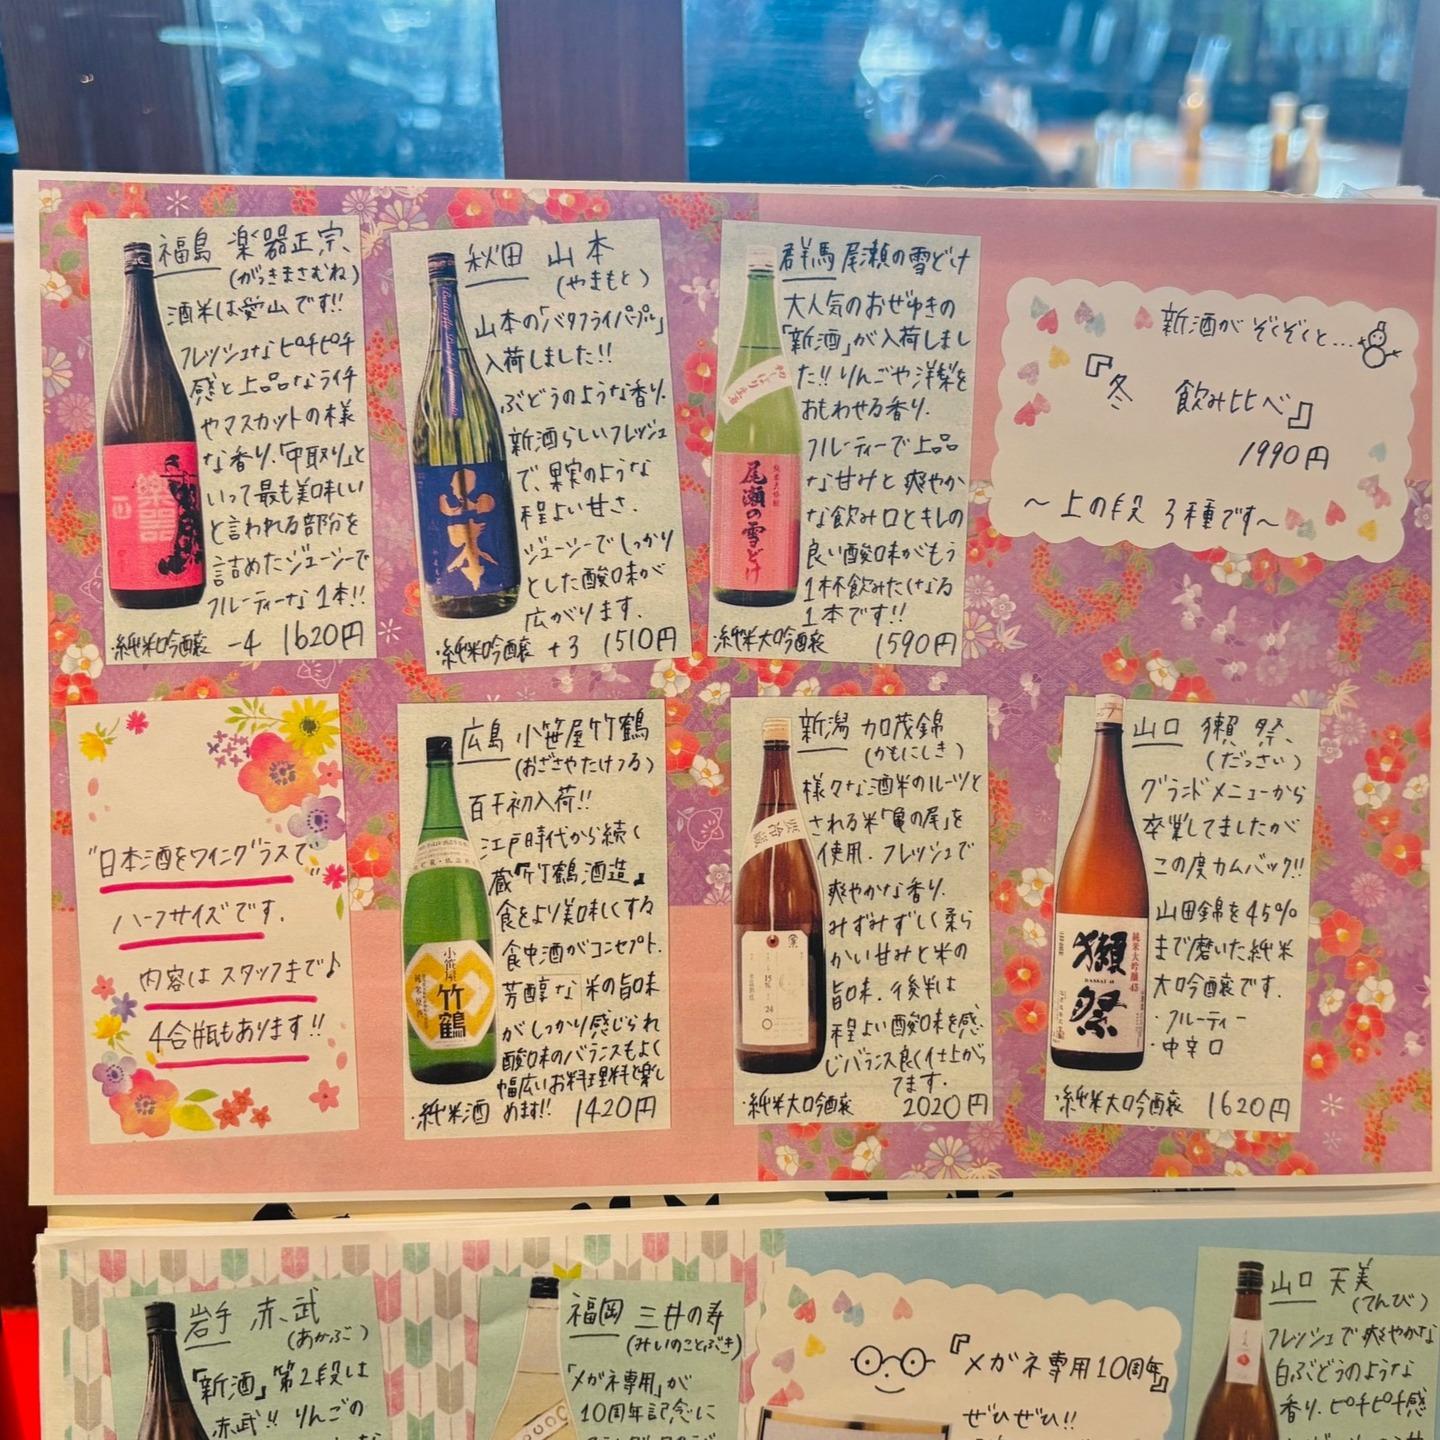 福島 楽器正宗、
(がっきまさむね)
酒米は愛山です!!
フレッシュなピチピチ
感と上品なライチ
やマスカットの様
な香り.「中取り」と
いって最も美味しい
と言われる部分を
詰めたジューシーで
フルーティーな1本!!
・純米吟醸 -4 1620円
秋田 山本
(やまもと)
山本の「バタフライパープル」
入荷しました!!
ぶどうのような香り.
新酒らしいフレッシュ
で、果実のような
程よい甘さ.
ジューシーでしっかり
とした酸味が
広がります.
・純米吟醸 +3 1510円
山本
群馬 尾瀬の雪どけ
大人気のおぜゆきの
「新酒」が入荷しまし
た!! りんごや洋梨を
おもわせる香り.
フルーティーで上品
な甘みと爽やか
な飲み口とキレの
良い酸味がもう
1杯飲みたくなる
1本です!!
・純米大吟醸 1590円
初しぼり生酒
純米大吟醸
尾瀬の雪どけ
新酒がぞくぞくと...
『冬 飲み比べ』
1990円
～上の段 3種です～
"日本酒をワイングラスで"
ハーフサイズです.
内容はスタッフまで♪
4合瓶もあります!!
広島 小笹屋竹鶴
(おざさやたけつる)
百千初入荷!!
江戸時代から続く
蔵『竹鶴酒造』
食をより美味しくする
食中酒がコンセプト.
芳醇な米の旨味
がしっかり感じられ
酸味のバランスもよく
幅広いお料理と楽し
めます!!
・純米酒 1420円
小笹屋
竹鶴
新潟 加茂錦
(かもにしき)
様々な酒米のルーツと
される米「亀の尾」を
使用. フレッシュで
爽やかな香り.
みずみずしく柔ら
かい甘みと米の
旨味. 後半は
程よい酸味を感
じバランス良く仕上がっ
てます.
・純米大吟醸 2020円
要冷蔵
山口 獺祭、
(だっさい)
グランドメニューから
卒業してましたが
この度カムバック!!
山田錦を45%
まで磨いた純米
大吟醸です.
・フルーティー
・中辛口
・純米大吟醸 1620円
獺祭
純米大吟醸 45
岩手 赤武
(あかぶ)
「新酒」第2段は
赤武!! りんごの
福岡 三井の寿
(みいのことぶき)
「メガネ専用」が
10周年記念に
『メガネ専用10周年』
ぜひぜひ!!
山口 天美
(てんび)
フレッシュで爽やかな
白ぶどうのような
香り. ピチピチ感